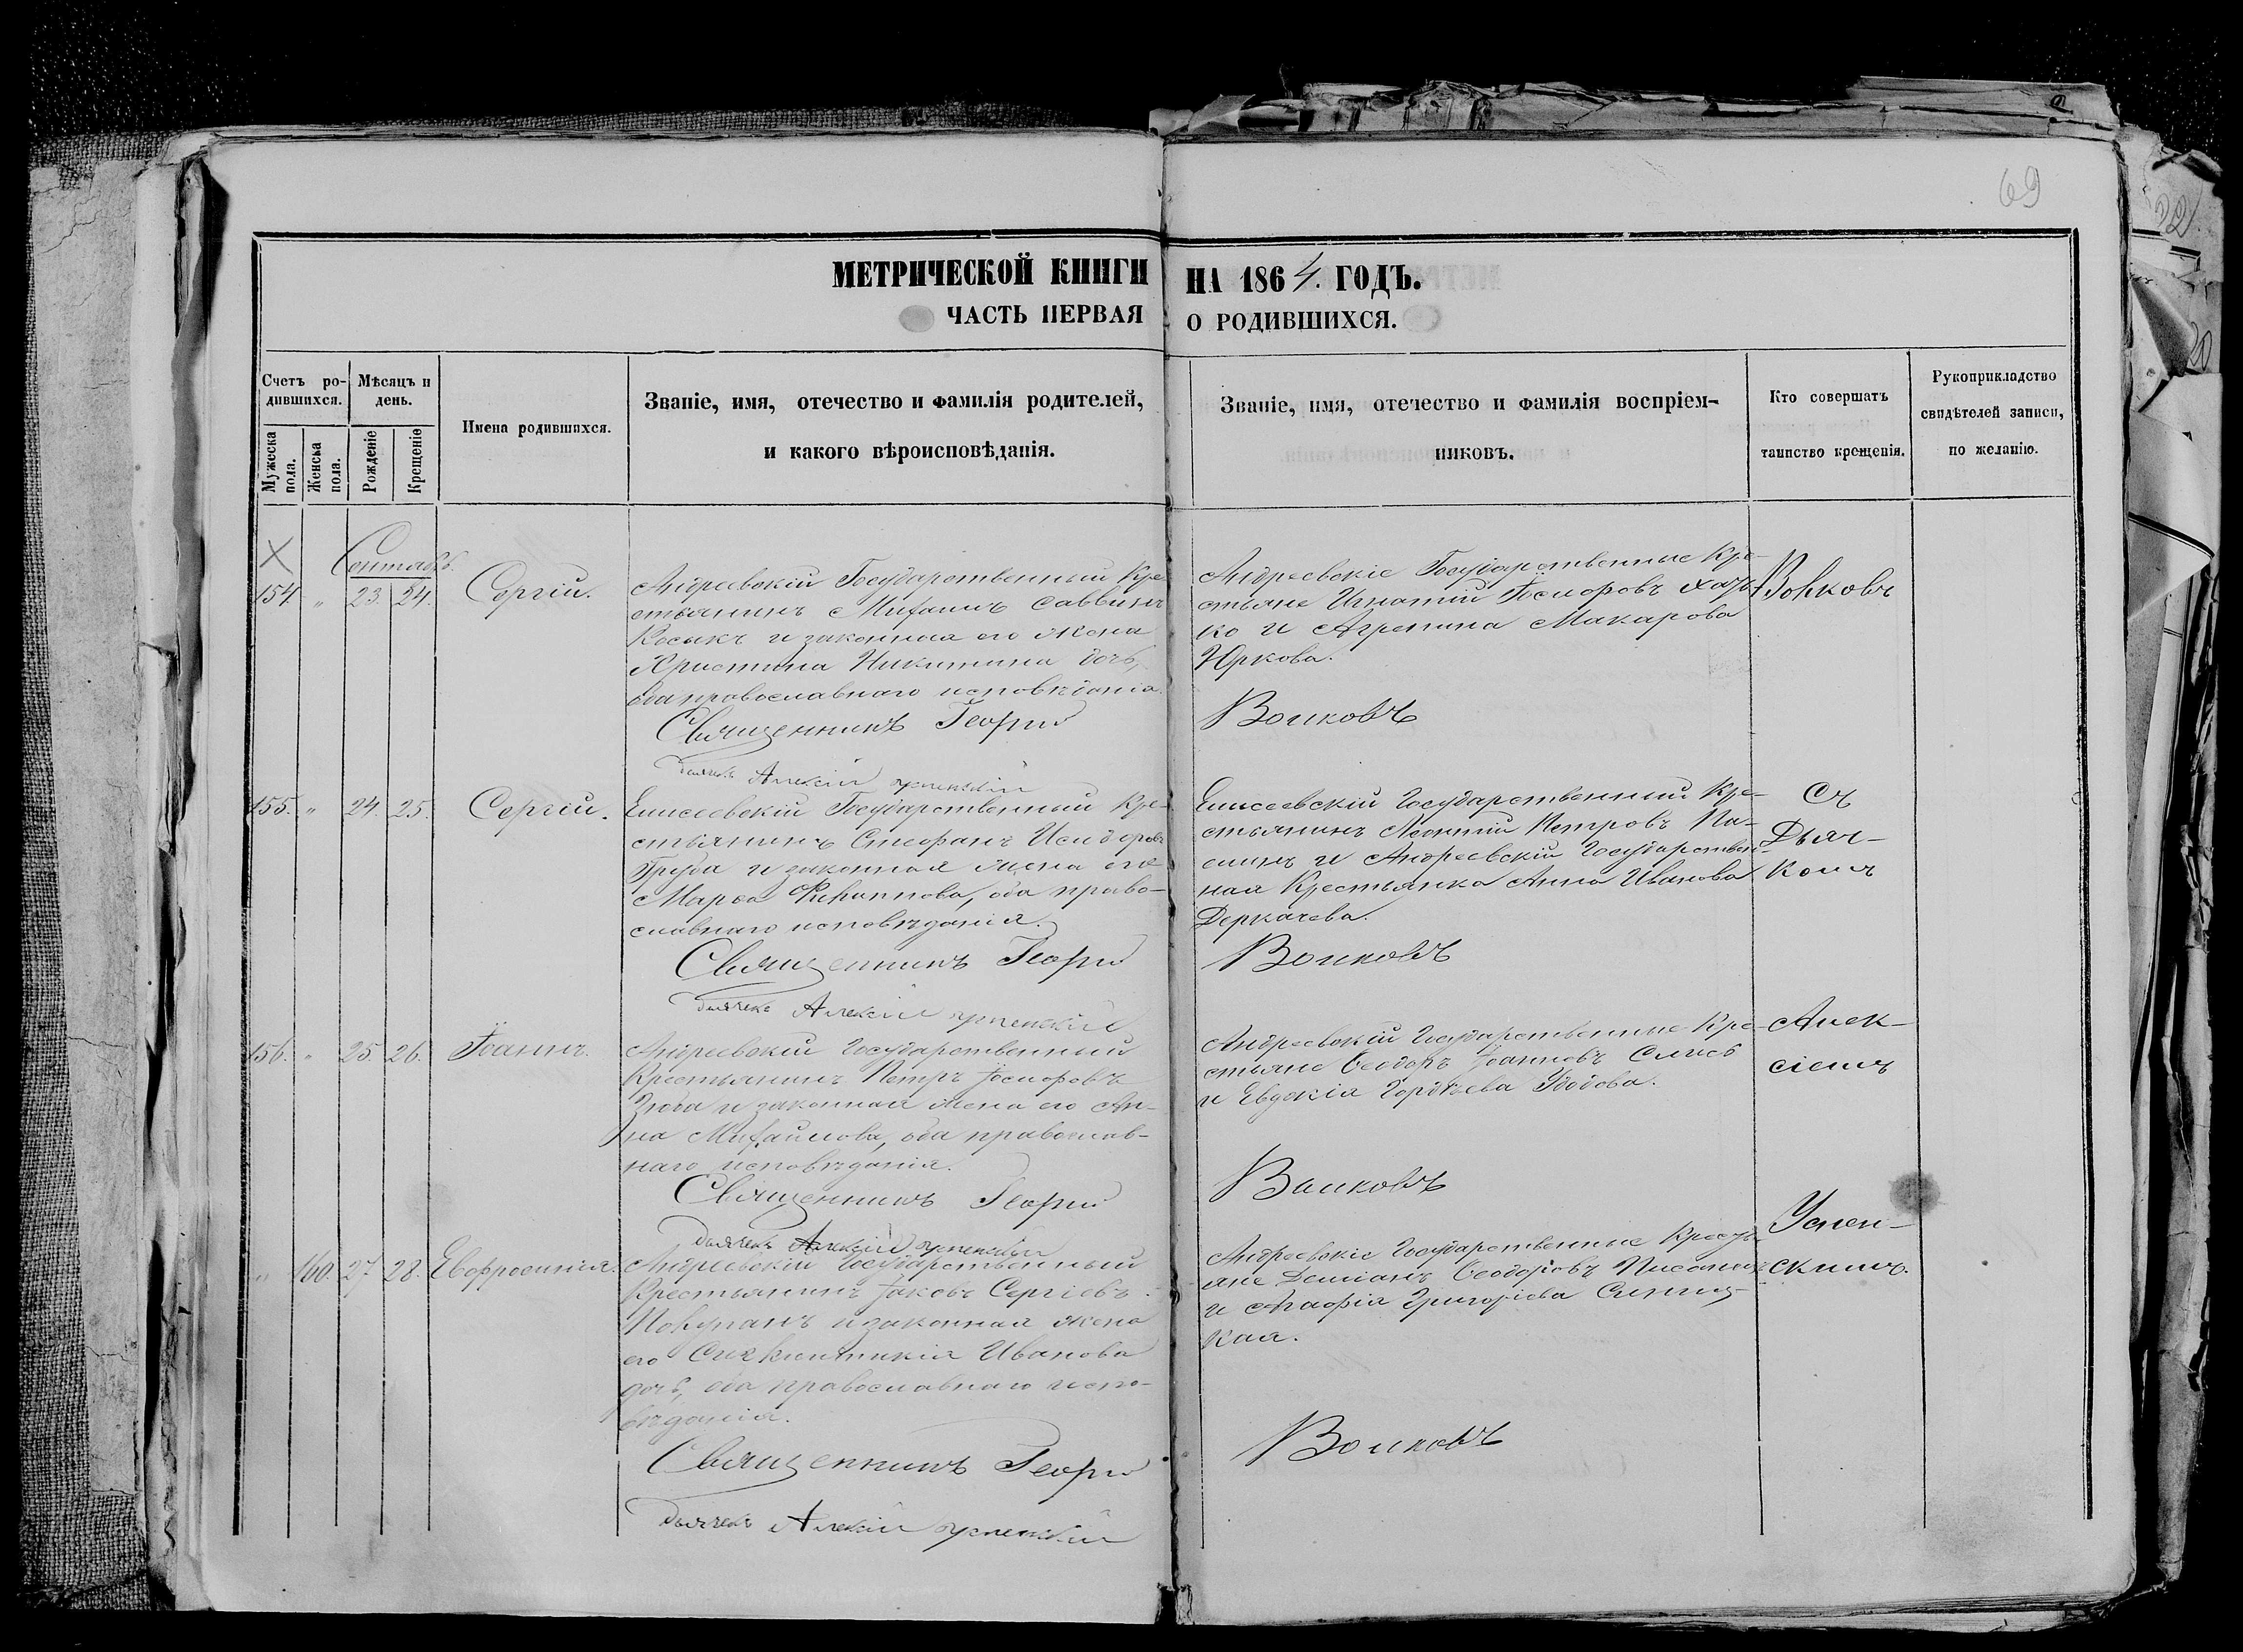 69
МЕТРИЧЕСКОЙ КНИГИ НА 1864. ГОДЪ.
ЧАСТЬ ПЕРВАЯ О РОДИВШИХСЯ.
Счетъ ро-
дившихся.
Мужеска пола.
Женска пола.
Мѣсяцъ и
день.
Рожденіе
Крещеніе
Имена родившихся.
Званіе, имя, отечество и фамилія родителей,
и какого вѣроисповѣданія.
Званіе, имя, отечество и фамилія воспріем-
никовъ.
Кто совершатъ
таинство крещенія.
Рукоприкладство
свидѣтелей записи,
по желанію.
Сентябъ.
154. " 23. 24. Сергій.
Андреевскій Государственный Кре
стьянинъ Михаилъ Саввинъ
Косыкъ и законная его жена
Христина Никитина дочь,
оба православнаго исповѣданія.
Священникъ Георгій Волковъ
дьячекъ Алексій Успенскій
Андреевскіе Государственные Кре-
стьяне Игнатій Іосифовъ
ко и Агрепина Макарова
Юркова.
Волковъ
155. " 24. 25. Сергій.
Елисеевскій Государственный Кре-
стьянинъ Стефанъ Исидоровъ
Груба и законная жена его
Марѳа Филиппова, оба право-
славнаго исповѣданія.
Священникъ Георгій Волковъ
дьячекъ Алексій Успенскій
Елисеевскій Государственный Кре-
стьянинъ Леонтій Петровъ Па-
и Андреевскій Государствен-
ная Крестьянка Анна Иванова
Деркачева.
Съ
Дьяч-
комъ
156. " 25. 26. Іоаннъ.
Андреевскій Государственный
Крестьянинъ Петръ Іосифовъ
Зюба и законная жена его Ан-
на Михайлова, оба православ-
наго исповѣданія.
Священникъ Георгій Волковъ
дьячекъ Алексій Успенскій
Андреевскій Государственные Кре-
стьяне Ѳеодоръ Іоанновъ
и Евдокія Гордѣева
Алек-
сіемъ
" 160. 27. 28. Евфросинія.
Андреевскій Государственный
Крестьянинъ Іаковъ Сергіевъ
и законная жена
его Сигклитикія Иванова
дочь, оба православнаго испо-
вѣданія.
Священникъ Георгій Волковъ
дьячекъ Алексій Успенскій
Андреевскіе Государственные Кресть-
яне Даміанъ Ѳеодоровъ
и Агафія Григоріева
кая.
Успен-
скимъ.